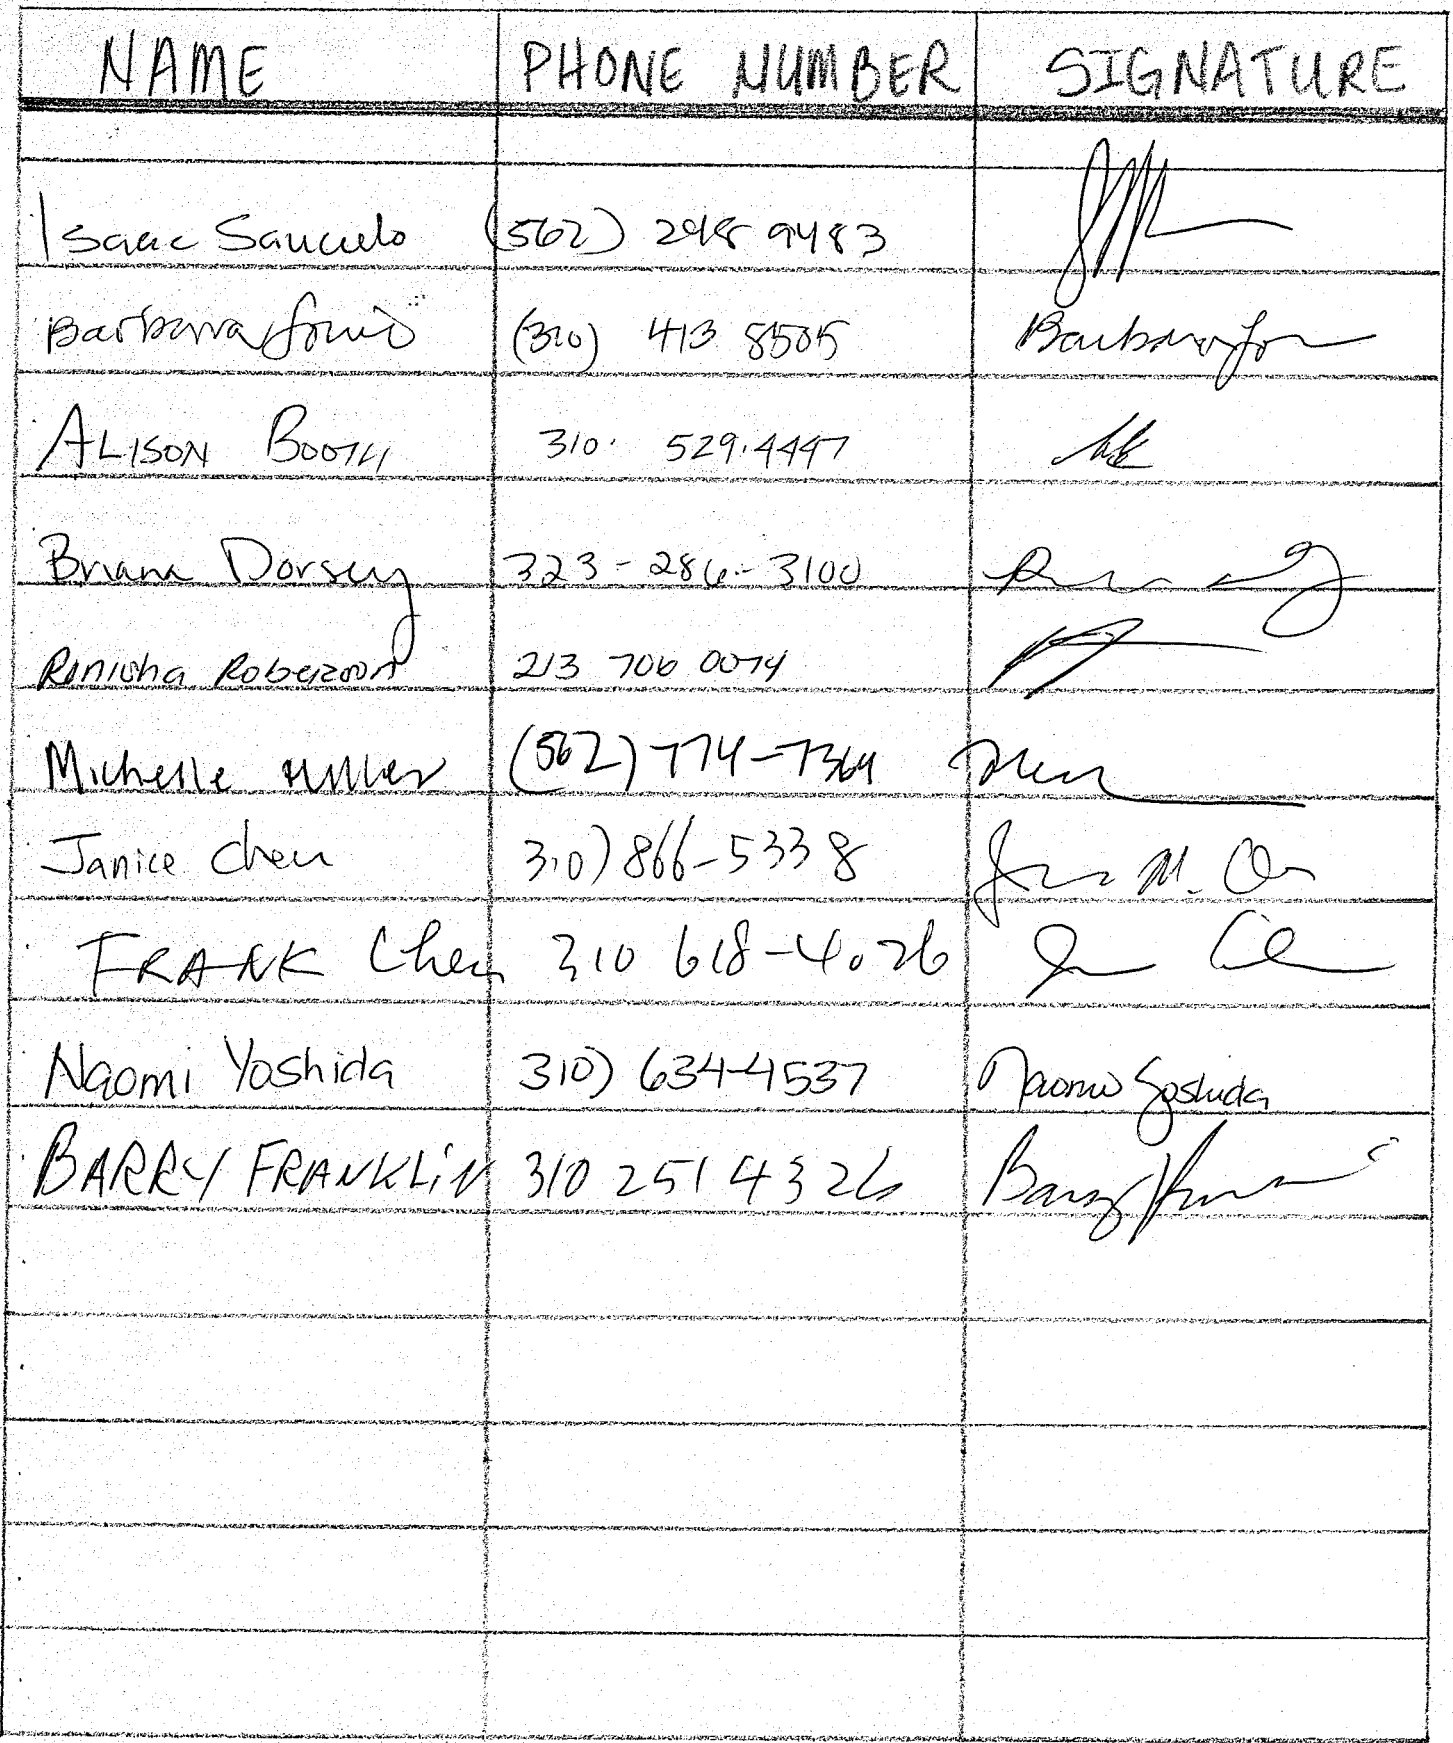 NAME PHONE NUMBER SIGNATURE
Isaac (562) 248 9483
Barbara (310) 413 8505 Barbara
ALISON BOOTH 310. 529.4447
Briana Dorsey 323-286-3100
Ronisha Roberson 213 706 0074
Michelle (562) 774-7364
Janice Chen 310) 866-5338
FRANK Chen 310 618-4026
Naomi Yoshida 310) 634-4537 Naomi Yoshida
BARRY FRANKLIN 310 251 4326 Barry